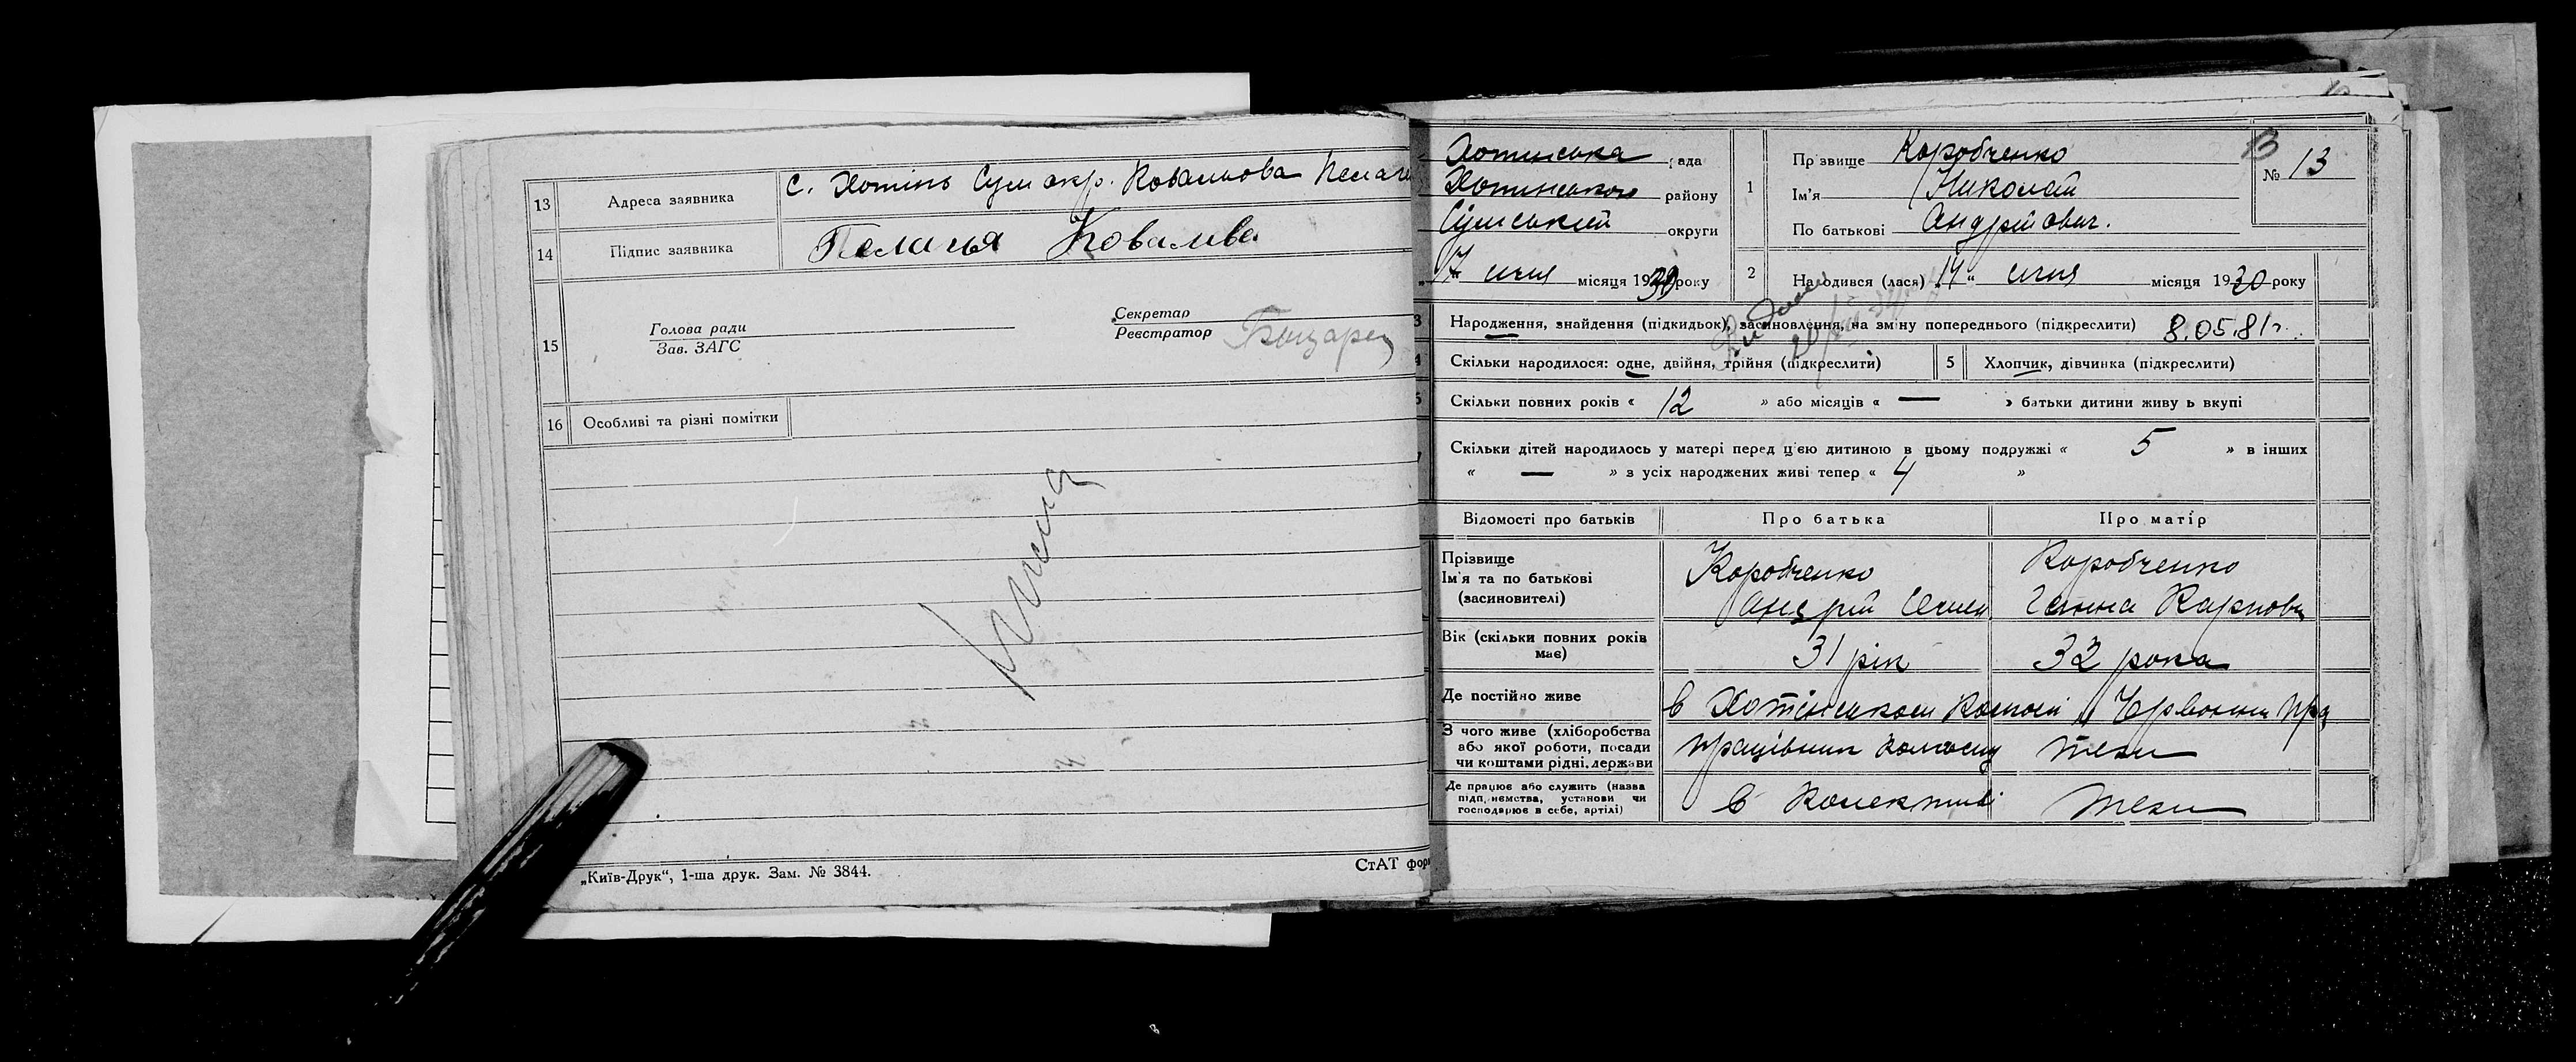 13 Адреса заявника с. Хотінь Сум окр. Ковальова Пелаг
14 Підпис заявника Пелагья Ковальва
15 Голова ради
Зав. ЗАГС
Секретар
Реєстратор
16 Особливі та різні помітки
„Київ-Друк“, 1-ша друк. Зам. № 3844.
СтАТ фор
Хотинська рада
Хотинського району
Сумський округи
17 січня місяця 1930 року
1 Прізвище Коробченко
Ім'я Николай
По батькові Андрійович.
13
№ 13
2 Народився (лася) „14“ січня місяця 1930 року
3 Народження, знайдення (підкидьок), засиновлення, на зміну попереднього (підкреслити) 8.05.81г.
4 Скільки народилося: одне, двійня, трійня (підкреслити) 5 Хлопчик, дівчинка (підкреслити)
Скільки повних років « 12 » або місяців « — » батьки дитини живуть вкупі
Скільки дітей народилось у матері перед цією дитиною в цьому подружжі « 5 » в інших
« — » з усіх народжених живі тепер « 4 »
Відомості про батьків Про батька Про матір
Прізвище
Ім'я та по батькові
(засиновителі)
Коробченко
Андрій Семен
Коробченко
Ганна Карповн
Вік (скільки повних років
має)
31 рік 32 рока
Де постійно живе в Хотінськом
З чого живе (хліборобства
або якої роботи, посади
чи коштами рідні, держави
працівник колгоспу теж
Де працює або служить (назва
підприємства, установи чи
господарює в себе, артілі)
в колективі теж